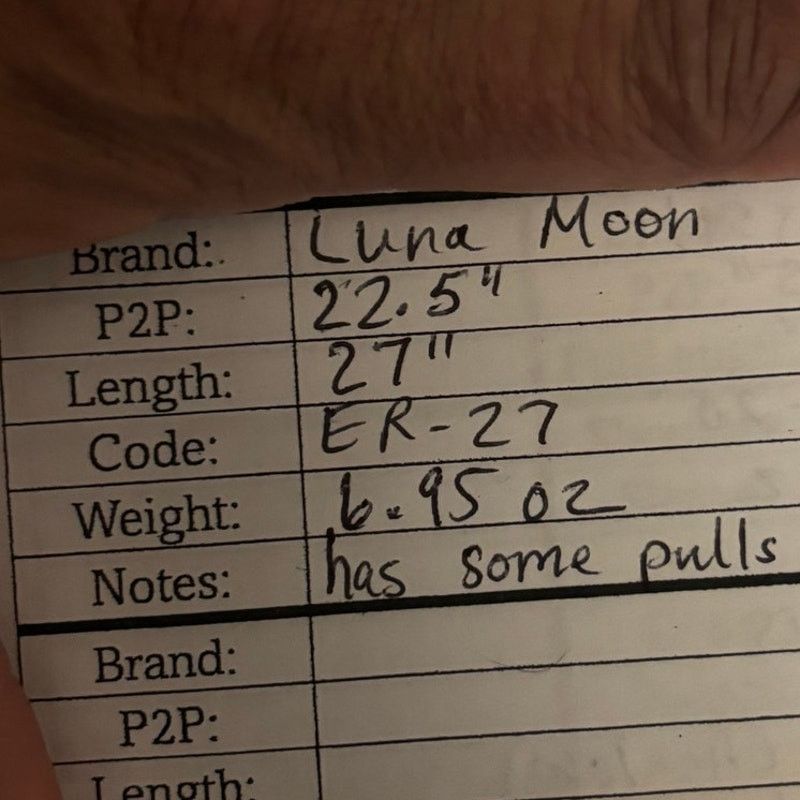 Brand: Luna Moon
P2P: 22.5"
Length: 27"
Code: ER-27
Weight: 6.95 oz
Notes: has some pulls
Brand:
P2P:
Length: